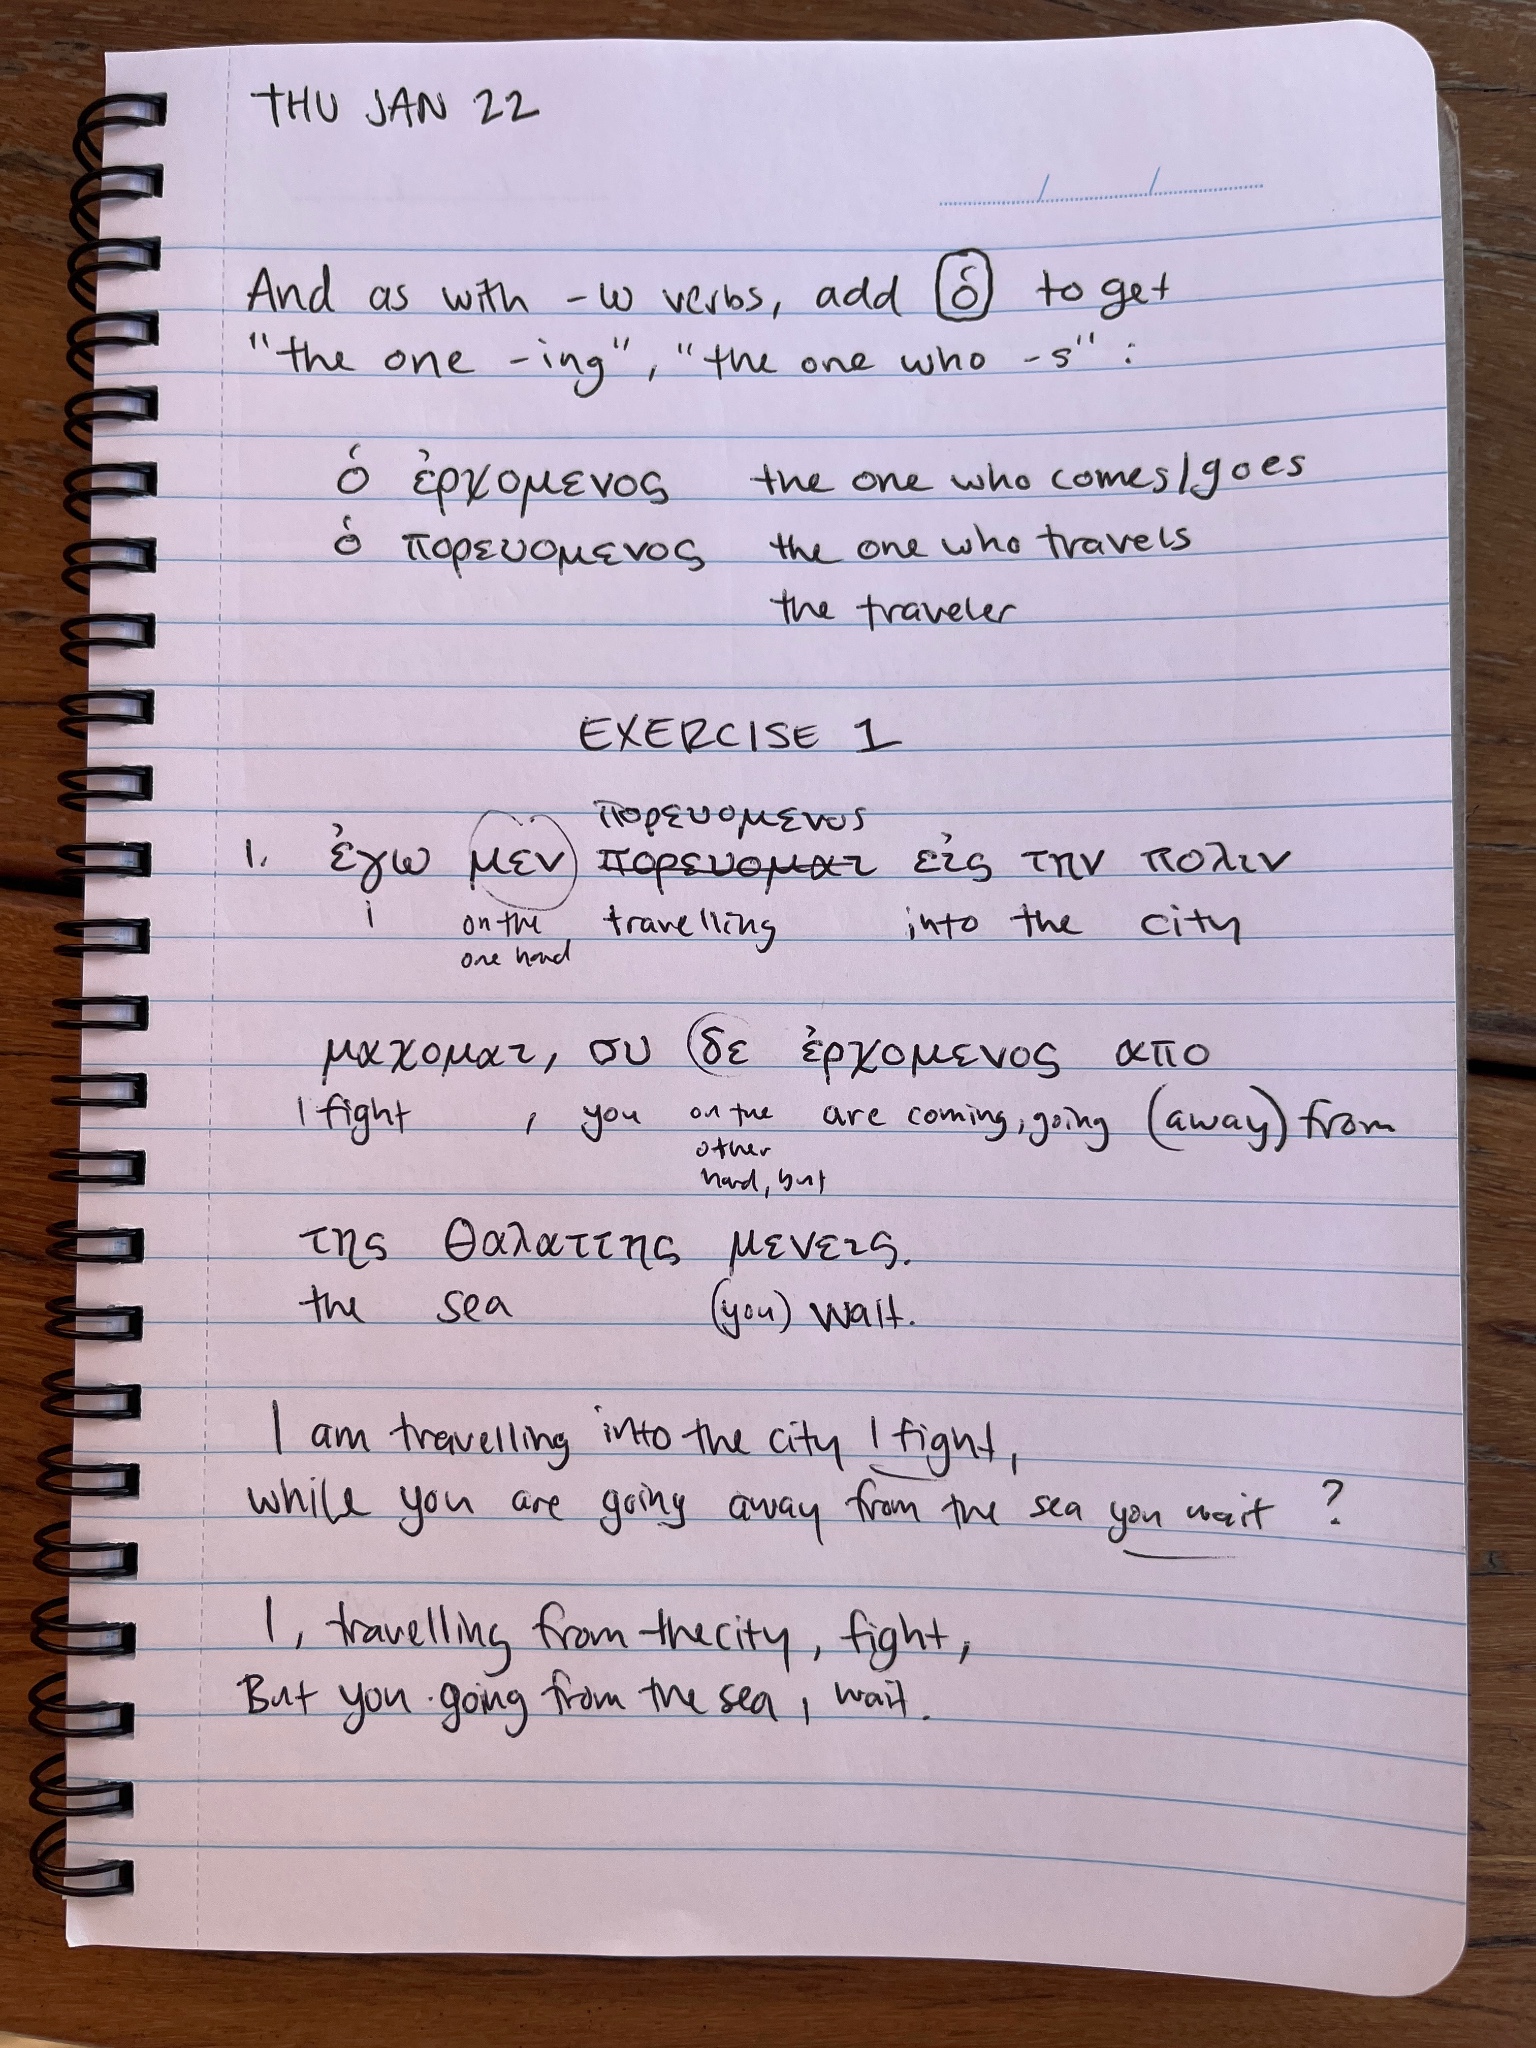 THU JAN 22
And as with -ω verbs, add ὁ to get
"the one -ing", "the one who -s" :
ὁ ἐρχομενος the one who comes/goes
ὁ πορευομενος the one who travels
the traveler
EXERCISE 1
πορευομενος
1. ἐγω μεν πορευομαι εἰς την πολιν
i on the one hand travelling into the city
μαχομαι, συ δε ἐρχομενος απο
I fight , you on the other hand, but are coming, going (away) from
της θαλαττης μενεις.
the sea (you) wait.
I am travelling into the city I fight,
while you are going away from the sea you wait ?
I, travelling from the city, fight,
But you going from the sea, wait.